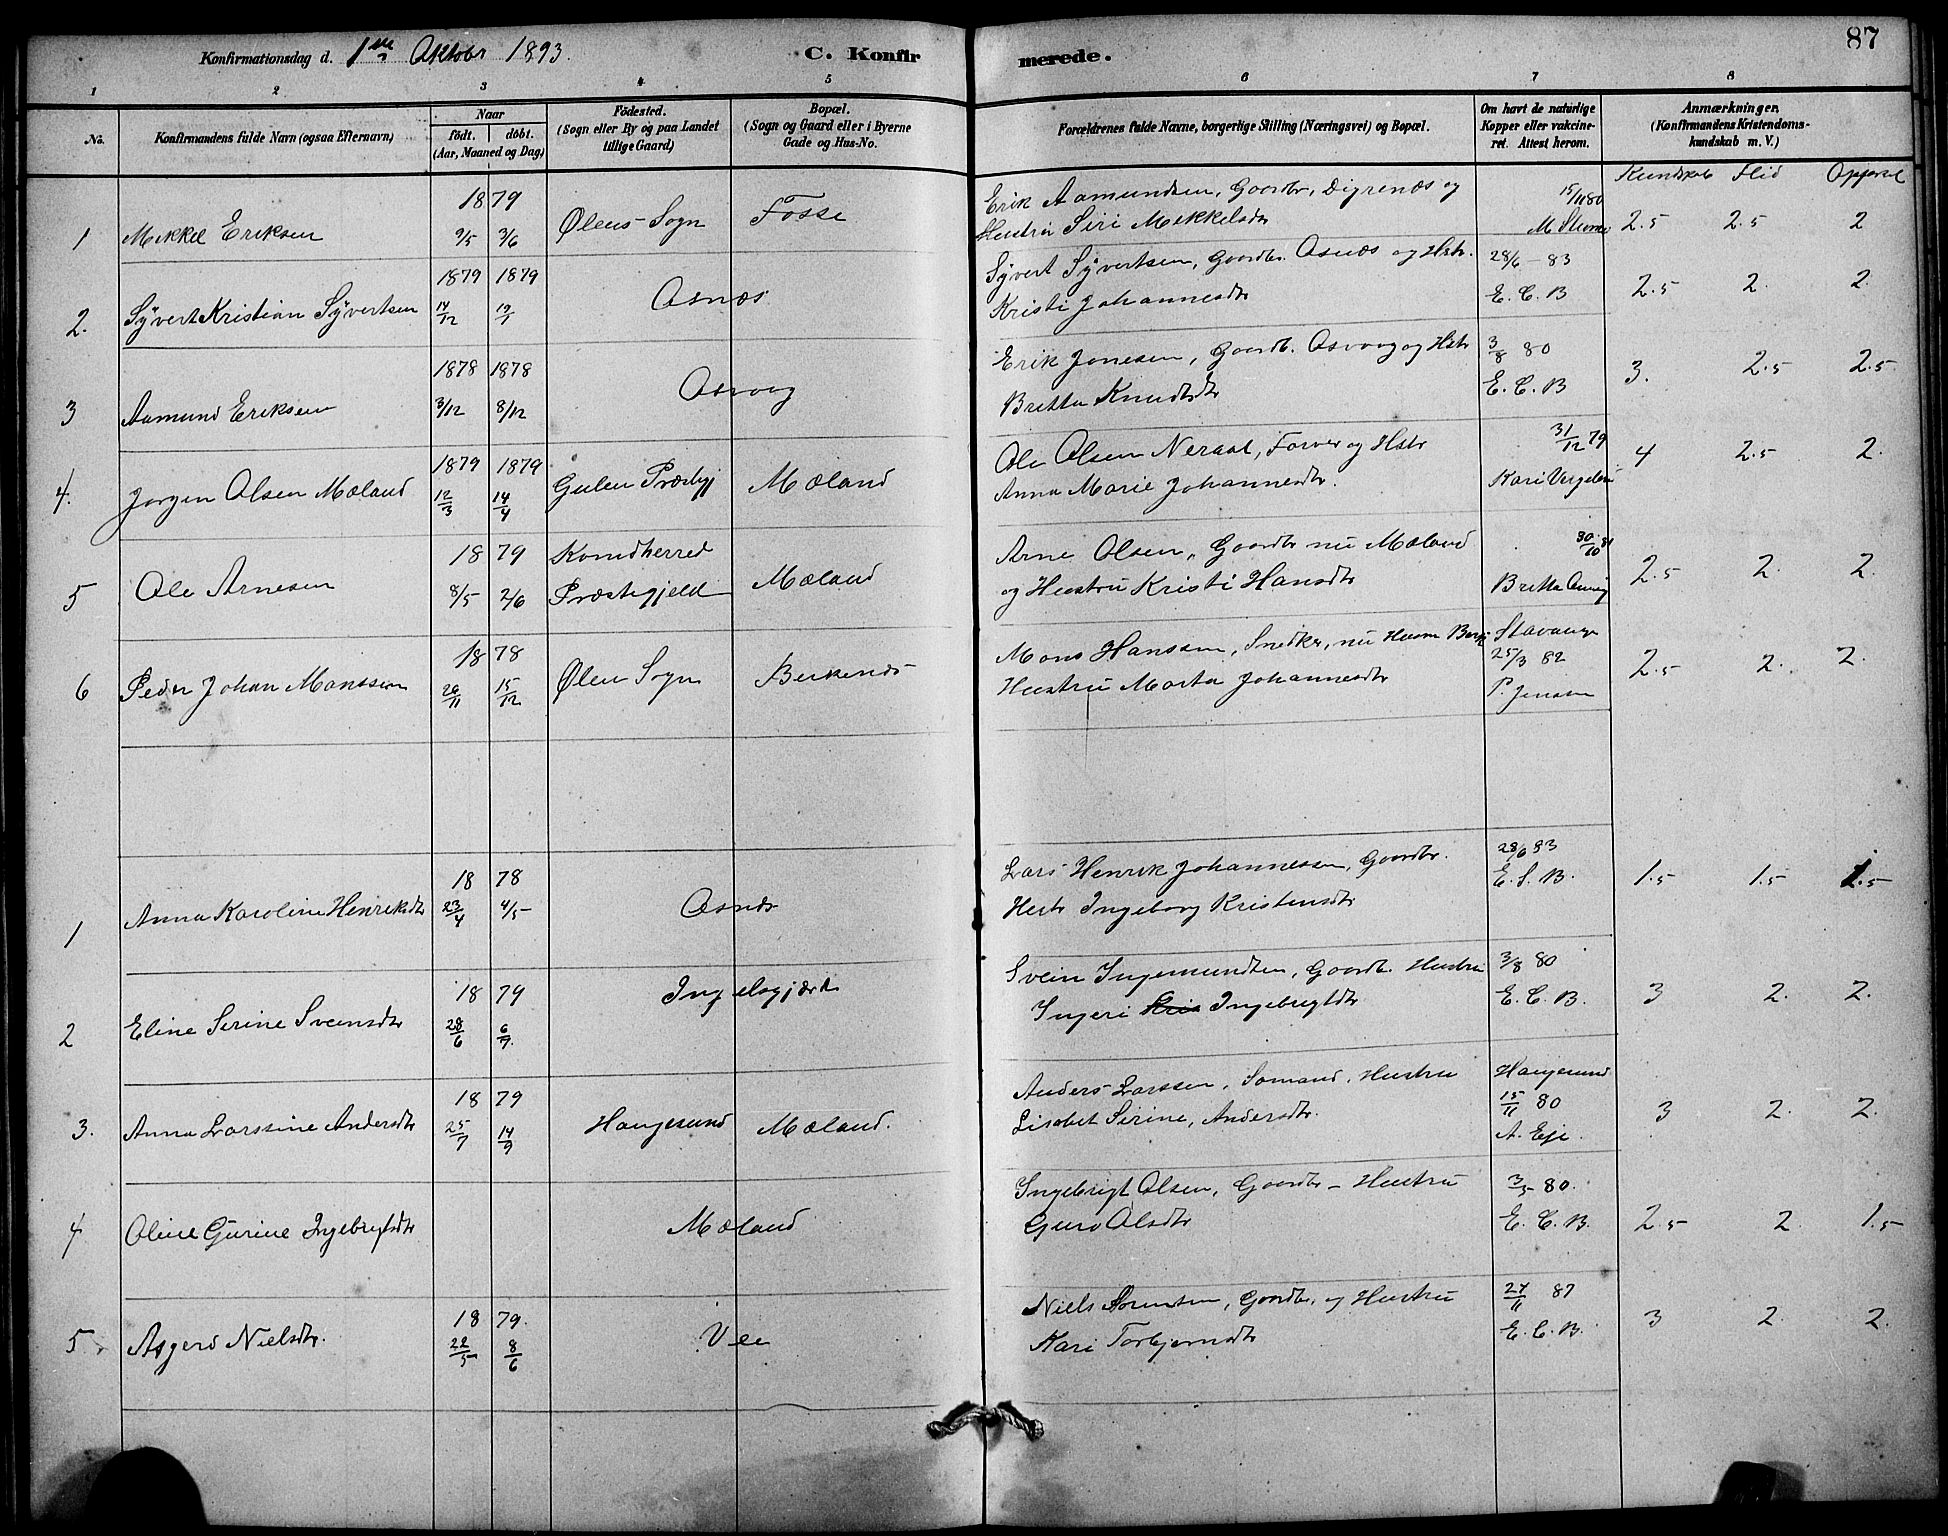 87
Konfirmationsdag d. 1ste Oktobr 1893. C. Konfirmerede.
1 2 3 4 5 6 7 8
No. Konfirmandens fulde Navn (ogsaa Efternavn) Naar født. døbt. (Aar, Maaned og Dag) Födested. (Sogn eller By og paa Landet tillige Gaard) Bopæl. (Sogn og Gaard eller i Byerne Gade og Hus-No. Forældrenes fulde Navne, borgerlige Stilling (Næringsvei) og Bopæl. Om havt de naturlige Kopper eller vakcineret. Attest herom. Anmærkninger. (Konfirmandens Kristendomskundskab m. V.)
Kundskab Flid Opførsel
1 Mikkel Eriksen 1879 9/5 3/6 Ølens Sogn Fosse Erik Aamundsen, Gaardbr, Digrenæs og Hustru Siri Mikkelsdtr 15/11 80 2.5 2.5 2
2. Sÿvert Kristian Sÿvertsen 1879 14/12 1879 Osnæs Sÿvert Sÿvertsen, Gaardbr. Osnæs og Hstr. Kristi Johannesdtr 28/6 - 83 E. C. B 2.5 2. 2.
3 Aamund Eriksen 1878 3/12 1878 8/12 Osvaag Erik Jonesen, Gaardb. Osvaag og Hstr Britta Knudtdtr 3/8 80 E. C. B 3. 2.5 2.5
4. Jørgen Olsen Mæland 1879 12/3 1879 14/4 Gulen Præstgj Mæland Ole Olsen Neraal, Farver og Hstr Anna Marie Johannesdtr. 31/12 79 Kari 4 2.5 2.
5 Ole Arnesen 1879 8/5 2/6 Kvindherred Præstegjeld Mæland Arne Olsen, Gaardbr nu Mæland og Hustru Kristi Hansdtr 30/10 81 Britta 2.5 2. 2.
6 Peder Johan Monssen 1878 26/11 15/12 Ølen Sogn Berkenæs Mons Hanssen, Snedker, nu Hustru Marta Johannesdtr Stavanger 25/3 82 P. Jensen 2.5 2. 2.
1 Anna Karoline Henriksdtr 1878 23/4 4/5 Osnæs Lars Henrik Johannessen, Gaardbr. Hustr Ingeborg Kristensdtr 28/6 83 E. S. B. 1.5 1.5 1.5
2 Eline Serine Sveinsdtr 1879 28/6 6/7. Ingelsgjærd Svein Ingemundsen, Gaardb. Hustru Ingeri Ingebrigtdtr 3/8 80 E. C. B. 3 2. 2.
3. Anna Larssine Andersdtr 1879 25/7 14/9 Haugesund Mæland. Anders Larssen, Sømand, Hustru Lisabet Serine, Andersdtr. Haugesund 15/11 80 A. Eje. 3 2. 2.
4 Oline Gurine Ingebrigtsdtr Mæland Ingebrigt Olsen, Gaardbr - Hustru Guro Olsdtr 3/5 80. E. C. B. 2.5 2. 1.5
5 Asgerd Nielsdtr. 1879. 22/5 8/6 Vee Niels Arentsen, Gaardbr, og Hustru Kari Torbjørnsdtr 27/11 87 E. C. B. 3 2. 2.